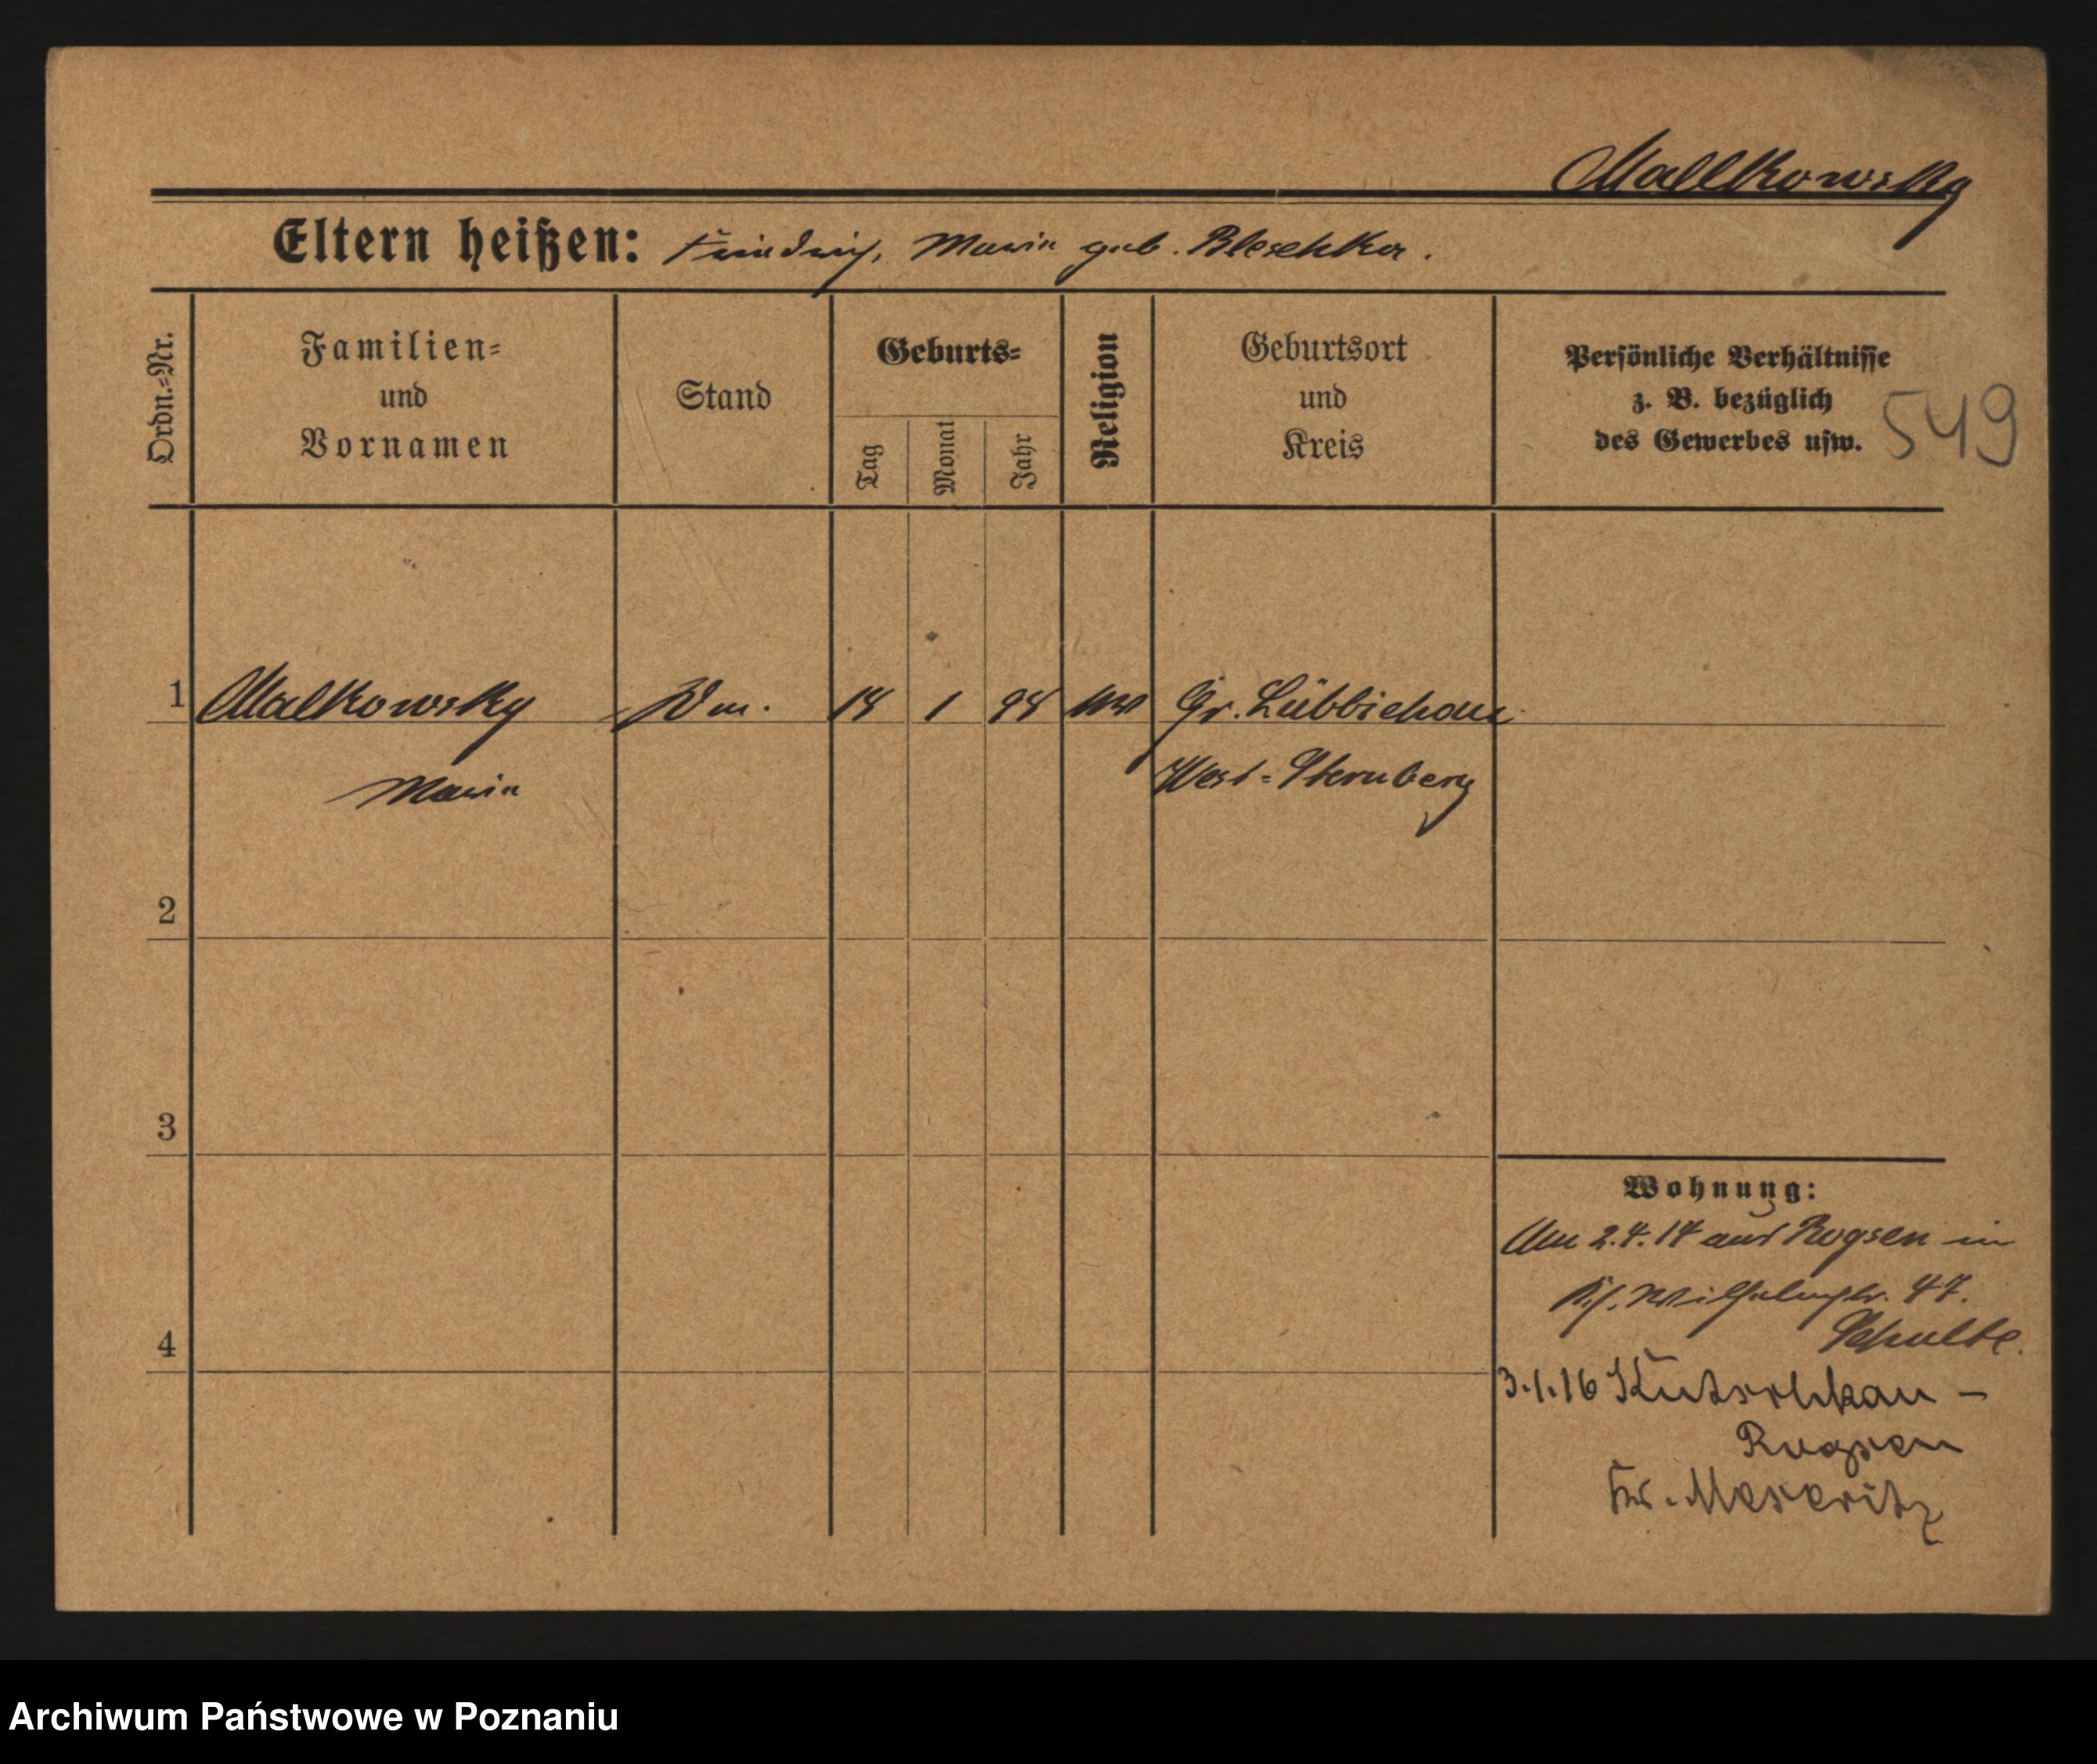 Malkowsky
Eltern heißen: Friedrich, Maria geb. Bleschka.
Ordn.-Nr.
Familien-
und
Vornamen
Stand
Geburts-
Tag
Monat
Jahr
Religion
Geburtsort
und
Kreis
Persönliche Verhältnisse
z. B. bezüglich
des Gewerbes usw.
549
1 Malkowsky 1 Gr. Lübbichow
Maria West-Sternberg
2
3
4
Wohnung:
2.4.14 aus Rogsen in
Wilhelmstr. 47.
Schulte.
3.1.16 Kutschkau -
Rogsen
Kr. Meseritz
Archiwum Państwowe w Poznaniu